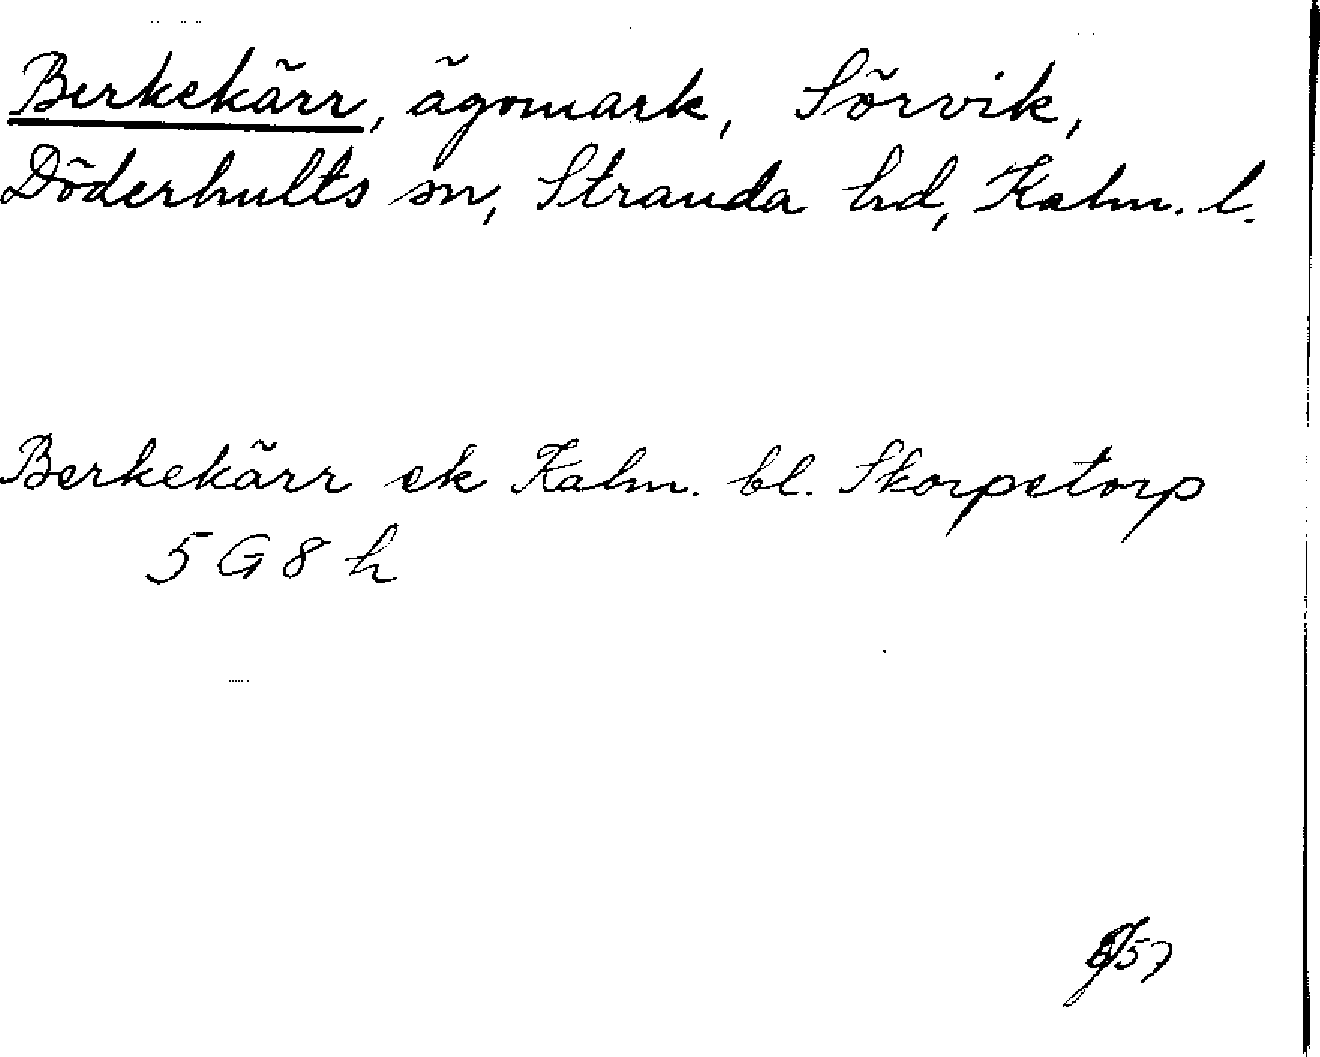 Berkekärr, ägomark, Sörvik,
Döderhults sn, Stranda hd, Kalm. l.
Berkekärr ek Kalm. bl. Skorpetorp
5 G 8 h
/57